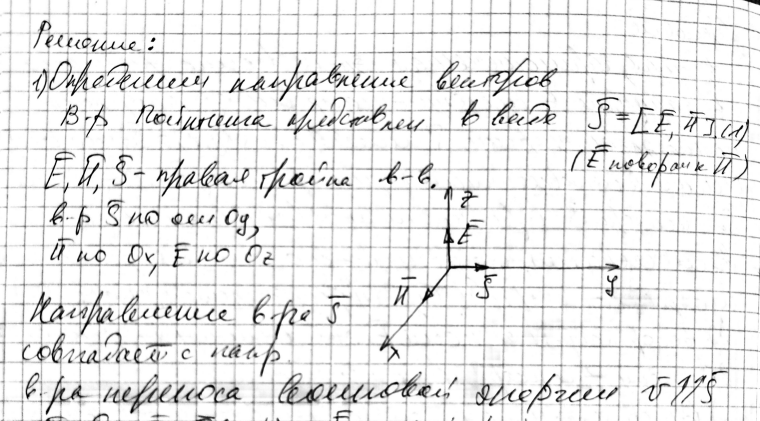 Решение:
1) Определим направление векторов
В-р Пойнтинга представлен в виде S̄ = [Ē, H̄] (1)
(Ē поворач к H̄)
Ē, H̄, S̄ - правая тройка в-в.
в-р S̄ по оси Oy,
H̄ по Ox, Ē по Oz
z
Ē
H̄
S̄
y
x
Направление в-ра S̄
совпадает с напр.
в-ра переноса волновой энергии v̄ ↑↑ S̄